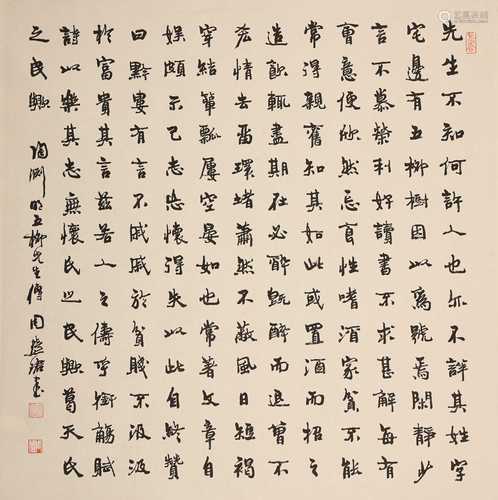 先生不知何許人也亦不詳其姓字
宅邊有五柳樹因以為號焉閑靜少
言不慕榮利好讀書不求甚解每有
會意便欣然忘食性嗜酒家貧不能
常得親舊知其如此或置酒而招之
造飲輒盡期在必醉既醉而退曾不
吝情去留環堵蕭然不蔽風日短褐
穿結簞瓢屢空晏如也常著文章自
娛頗示己志忘懷得失以此自終贊
曰黔婁有言不戚戚於貧賤不汲汲
於富貴其言茲若人之儔乎銜觴賦
詩以樂其志無懷氏之民歟葛天氏
之民歟
陶淵明五柳先生傳 周 書